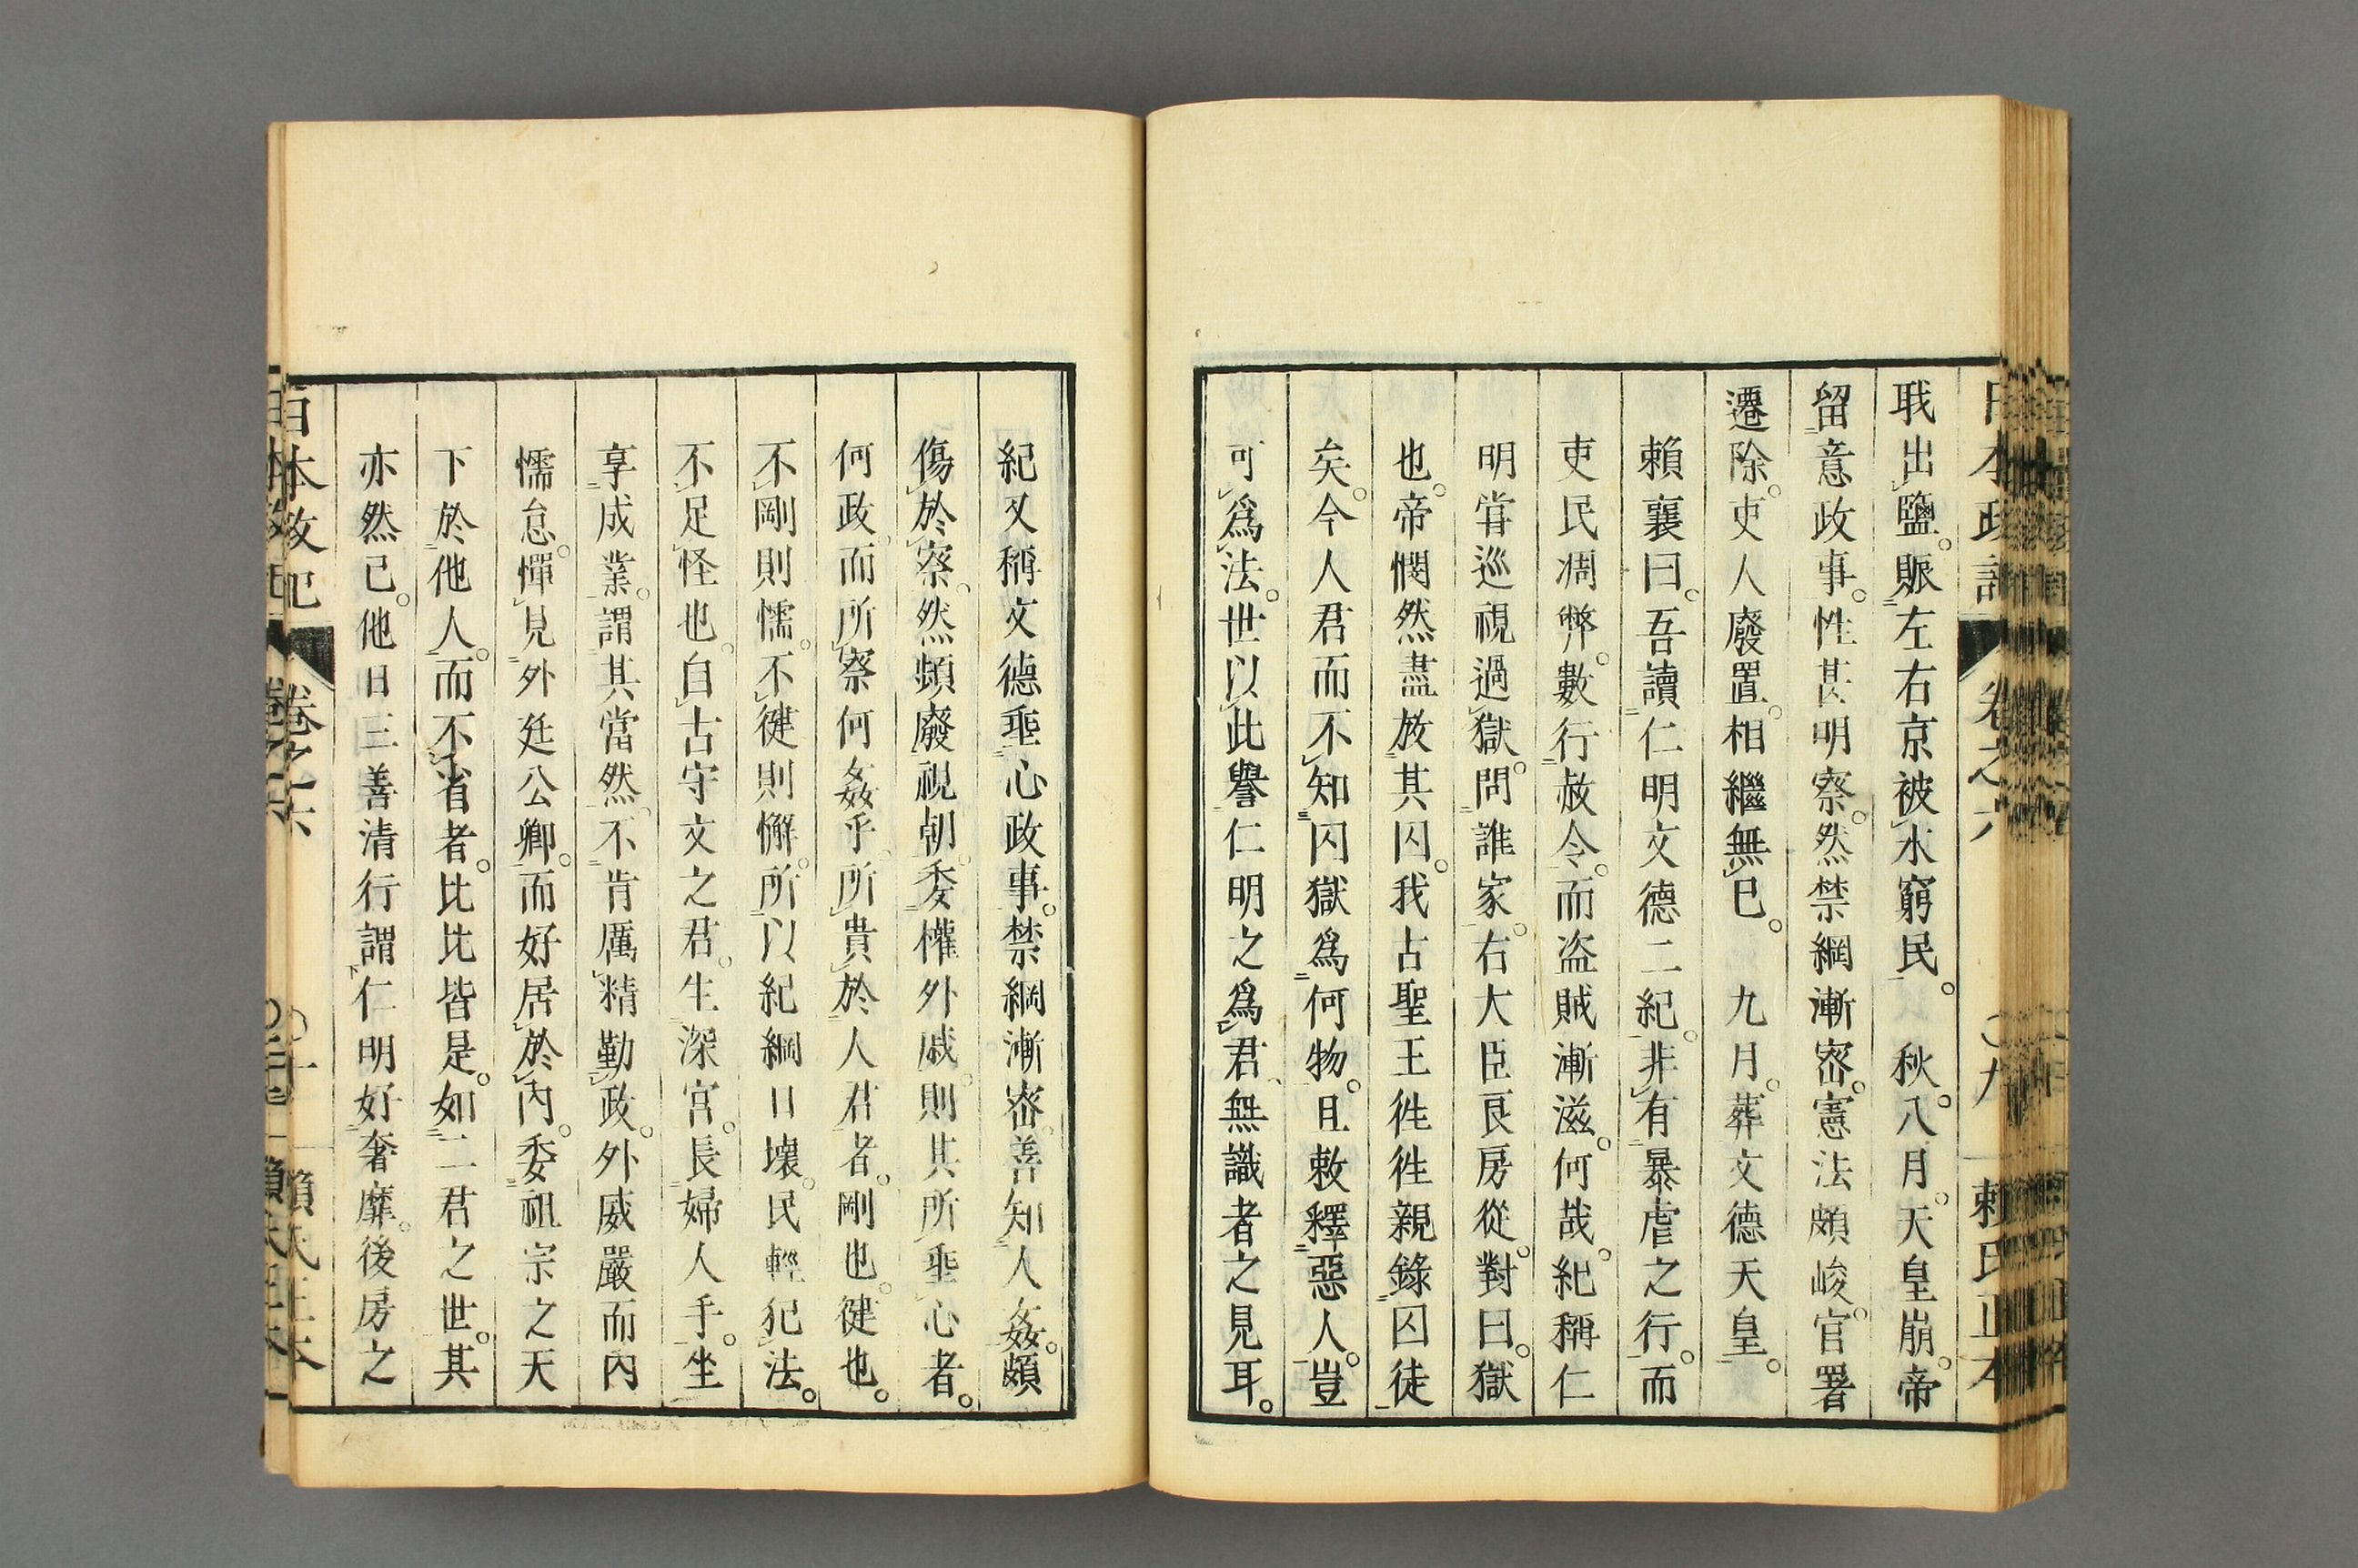 日本政記 卷之六 〇九 賴氏正本
戝出鹽。賑左右京被水窮民。秋。八月。天皇崩。帝
留意政事。性甚明察。然禁網漸密。憲法頗峻。官署
遷除。吏人廢置。相繼無已。九月。葬文德天皇。
賴襄曰。吾讀仁明文德二紀。非有暴虐之行。而
吏民凋弊。數行赦令。而盗賊漸滋。何哉。紀稱仁
明甞巡視過獄。問誰家。右大臣良房從。對曰。獄
也。帝憫然盡放其囚。我占聖王徃徃親錄囚徒
矣。今人君而不知囚獄爲何物。且敕釋惡人。豈
可爲法。世以此譽仁明之爲君、無識者之見耳。
紀又稱文德垂心政事。禁網漸密。善知人姦。頗
傷於察。然頻廢視朝。委權外戚。則其所垂心者。
何政。而所察何姦乎。所貴於人君者。剛也。健也。
不剛則懦。不健則懈。所以紀綱日壞。民輕犯法。
不足怪也。自古守文之君。生深宮。長婦人手。坐
享成業。謂其當然。不肯厲精勤政。外威嚴而內
懦怠。憚見外廷公卿。而好居於內。委祖宗之天
下於他人。而不省者。比比皆是。如二君之世。其
亦然已。他日三善清行謂仁明好奢靡。後房之
日本政記 卷之六 〇十 賴氏正本